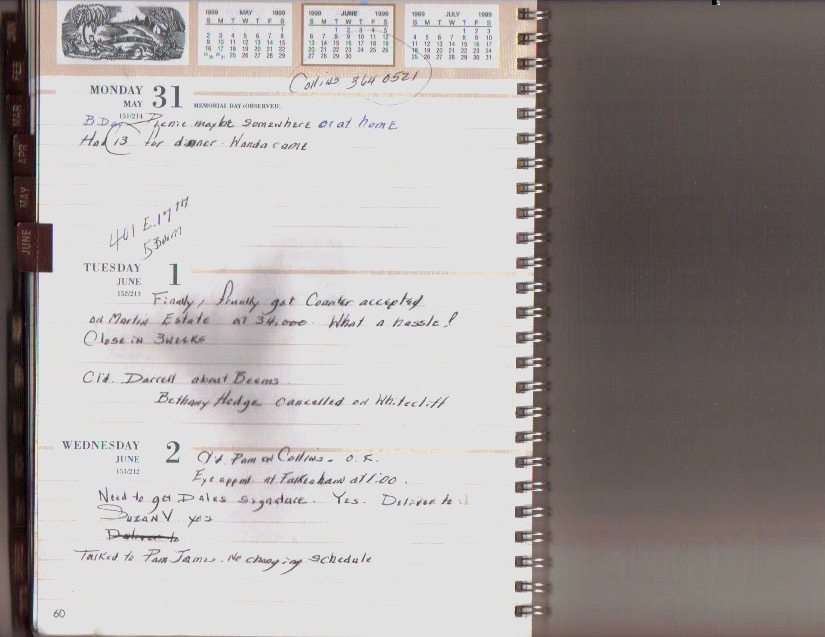 1999 MAY 1999
S M T W T F S
1
2 3 4 5 6 7 8
9 10 11 12 13 14 15
16 17 18 19 20 21 22
23 24 25 26 27 28 29
30 31
1999 JUNE 1999
S M T W T F S
1 2 3 4 5
6 7 8 9 10 11 12
13 14 15 16 17 18 19
20 21 22 23 24 25 26
27 28 29 30
1999 JULY 1999
S M T W T F S
1 2 3
4 5 6 7 8 9 10
11 12 13 14 15 16 17
18 19 20 21 22 23 24
25 26 27 28 29 30 31
Collins 364 0521
FEB
MAR
APR
MAY
JUNE
MONDAY 31
MAY MEMORIAL DAY (OBSERVED)
151/214
B Day Picnic maybe somewhere or at home
Had 13 for dinner. Wanda came
401 E. 17th
5 Bdrm
TUESDAY 1
JUNE
152/213
Finally, finally got Counter accepted
on Martin Estate at 34,000. What a hassle!
Close in 3 weeks
Cld. Darrell about Beems
Bethany Hedge cancelled on Whitecliff
WEDNESDAY 2
JUNE
153/212
Cld. Pam on Collins - O.K.
Eye appmt. at 1:00.
Need to get Dales signature. Yes. Deliver to
Suzan V yes
Deliver to
Talked to Pam James. No changing schedule
60